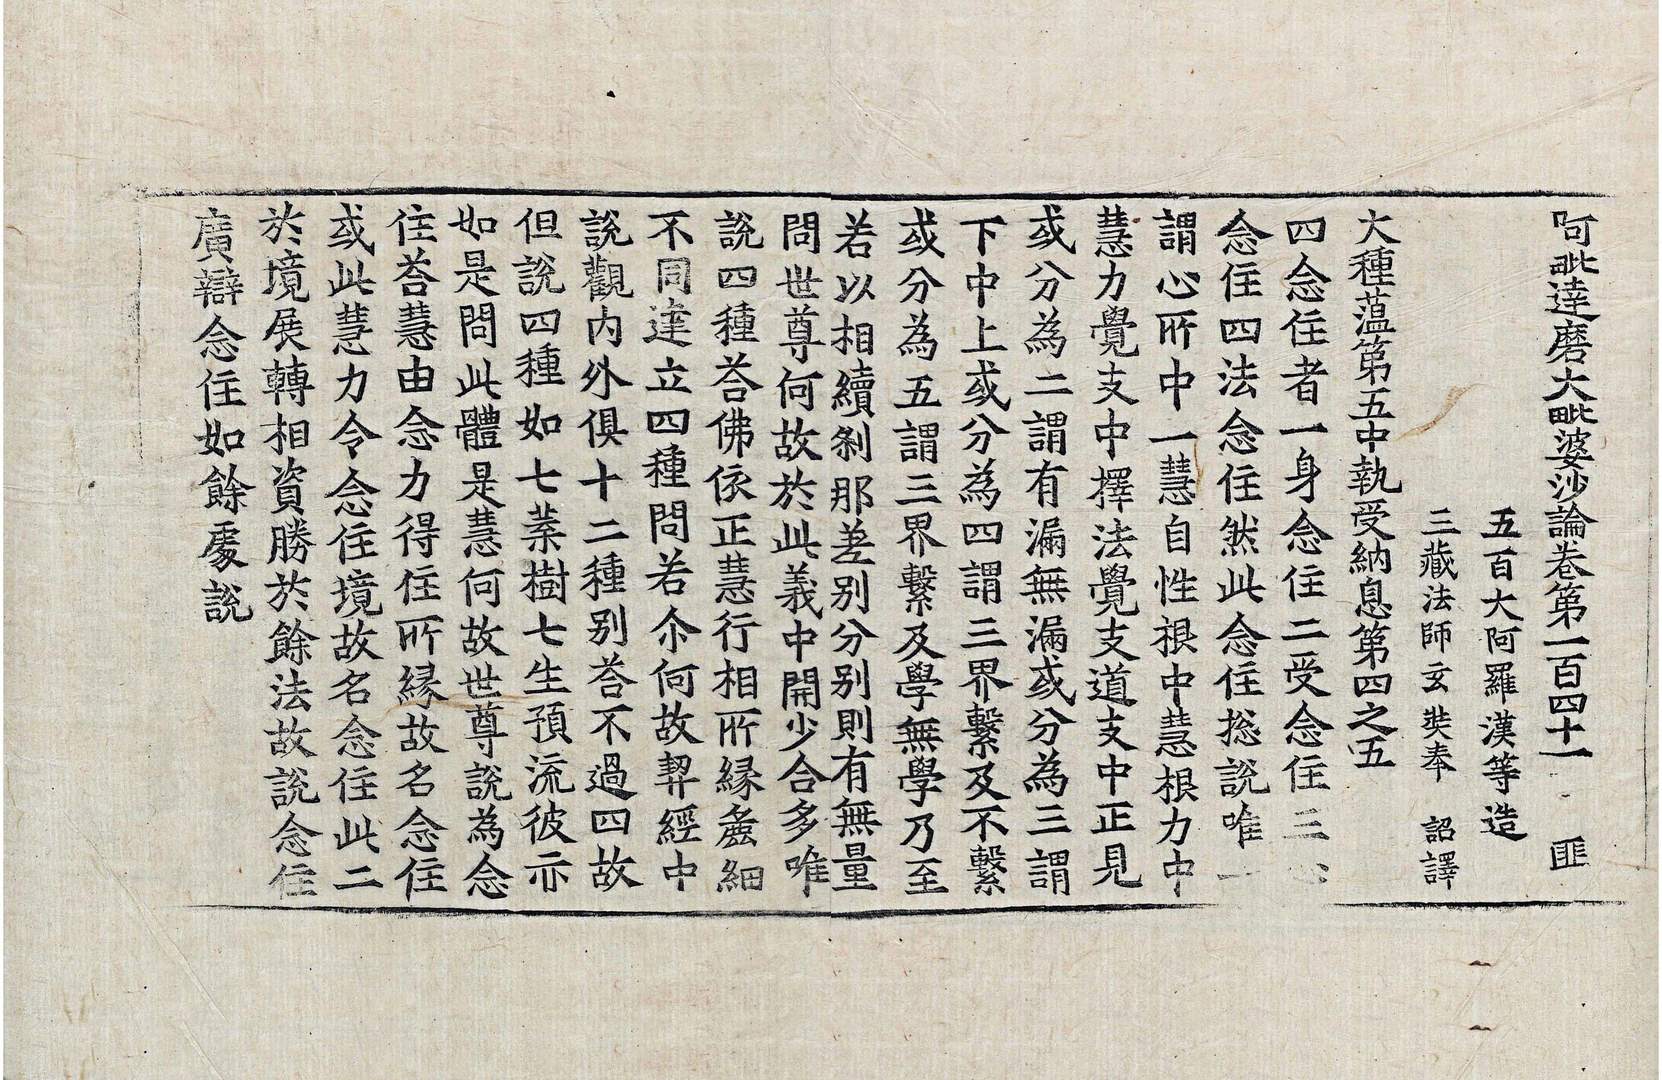 阿毗達磨大毗婆沙論卷第一百四十一 匪
五百大阿羅漢等造
三藏法師玄奘奉 詔譯
大種蘊第五中執受納息第四之五
四念住者一身念住二受念住三心
念住四法念住然此念住揔說唯一
謂心所中一慧自性根中慧根力中
慧力覺支中擇法覺支道支中正見
或分為二謂有漏無漏或分為三謂
下中上或分為四謂三界繫及不繫
或分為五謂三界繫及學無學乃至
若以相續剎那差別分別則有無量
問世尊何故於此義中開少合多唯
說四種荅佛依正慧行相所緣麁細
不同建立四種問若尒何故契經中
說觀內外俱十二種別荅不過四故
但說四種如七葉樹七生預流彼亦
如是問此體是慧何故世尊說為念
住荅慧由念力得住所緣故名念住
或此慧力令念住境故名念住此二
於境展轉相資勝於餘法故說念住
廣辯念住如餘處說